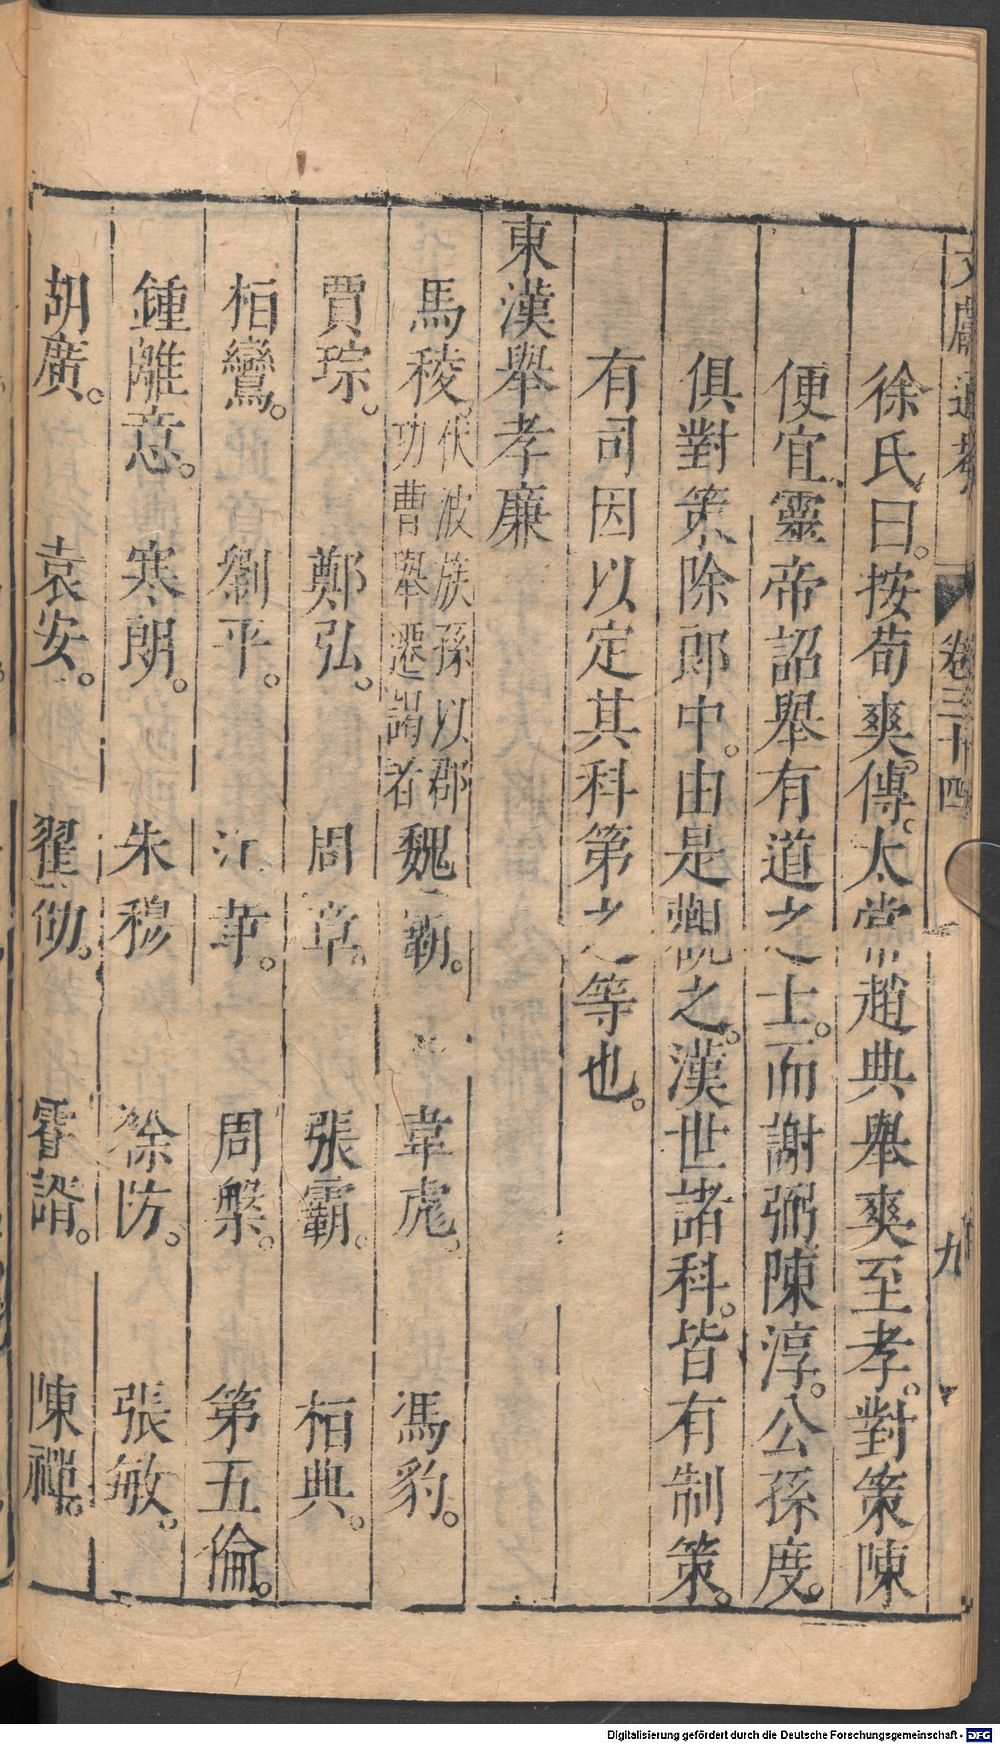 文獻通考 卷三十四 九
徐氏曰。按荀爽傳。太常趙典舉爽至孝。對策陳
便宜。靈帝詔舉有道之士。而謝弼陳淳。公孫度。
俱對策除郎中。由是觀之。漢世諸科。皆有制策。
有司因以定其科第之等也。
東漢舉孝廉
馬稜。伏波族孫以郡功曹舉遷謁者 魏霸。 韋虎。 馮豹。
賈琮。 鄭弘。 周章。 張霸。 栢典。
栢鸞。 劉平。 江革。 周槃。 第五倫。
鍾離意。 寒朗。 朱穆 徐防。 張敏。
胡廣。 袁安。 翟酺。 霍諝。 陳禪。
Digitalisierung gefördert durch die Deutsche Forschungsgemeinschaft - DFG